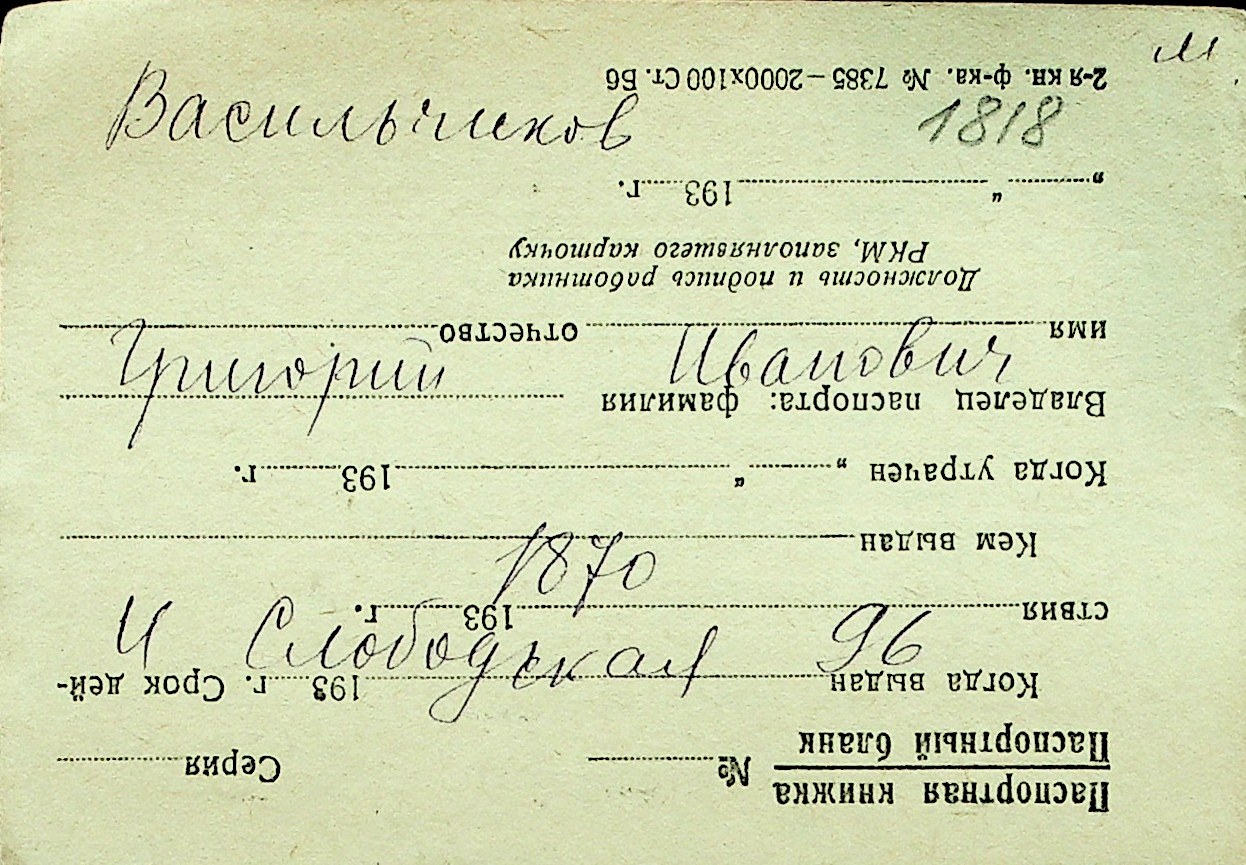 м
Васильчиков 1818
Григорий Иванович
1870
4 Слободская 96
Паспортная книжка
Паспортный бланк № Серия
Когда выдан 193 г. Срок дей-
ствия 193 г.
Кем выдан
Когда утрачен „ “ 193 г.
Владелец паспорта: фамилия
имя отчество
Должность и подпись работника
РКМ, заполнявшего карточку
„ “ 193 г.
2-я кн. ф-ка. № 7385—2000х100 Ст. Б6